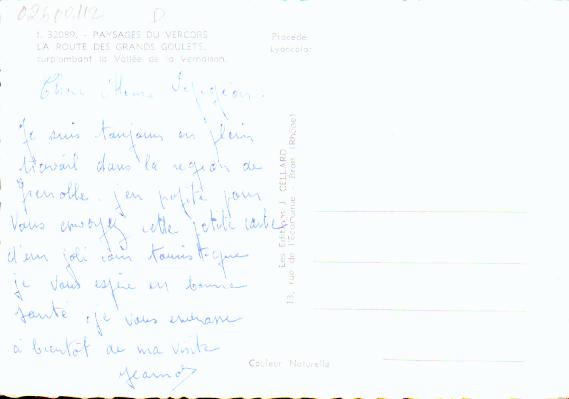 02600112 D
I. 32089. - PAYSAGES DU VERCORS
LA ROUTE DES GRANDS GOULETS,
surplombant la Vallée de la Vernaison.
Procédé
Lyoncolor
Je suis toujours en plein
travail dans la region de
Grenoble. j'en profite pour
Vous envoyez cette petite carte
d'un joli coin touristique
je vous espère en bonne
santé. je vous embrasse
a bientôt de ma visite
Les Editions J. CELLARD
13, rue de l'Economie - Bron (Rhône)
Couleur Naturelle